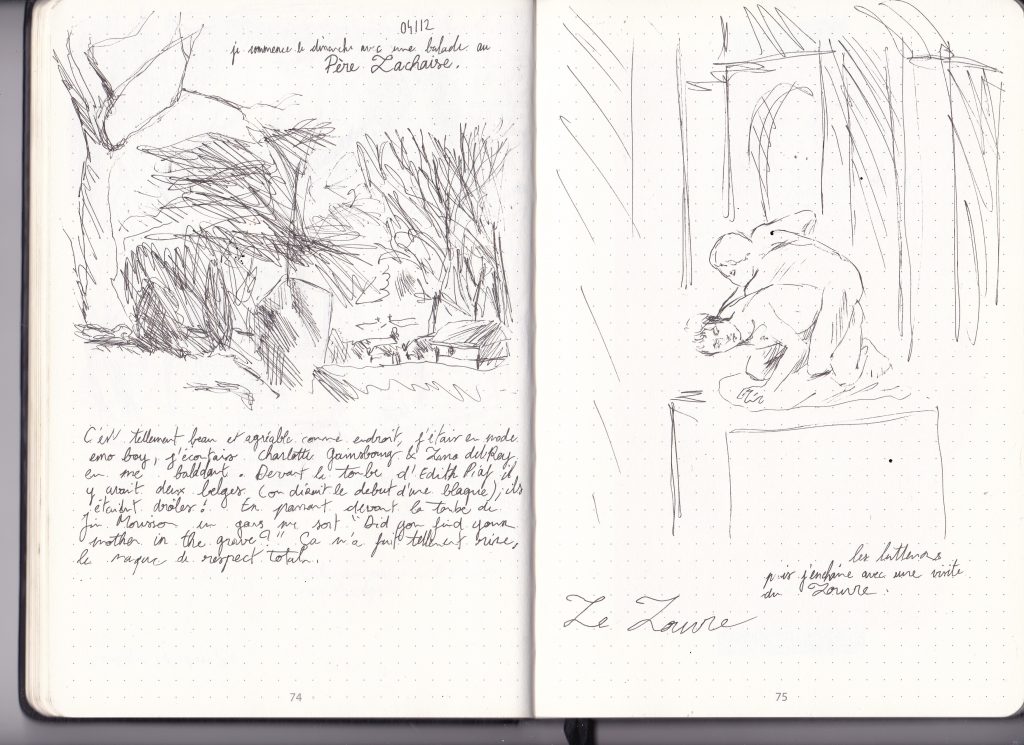 04/12
je commence le dimanche avec une balade au
Père Lachaise.
C'est tellement beau et agréable comme endroit, j'étais en mode
emo boy, j'écoutais Charlotte Gainsbourg & Lana del Rey
en me baladant. Devant la tombe d'Edith Piaf il
y avait deux belges (on dirait le debut d'une blague), ils
étaient drôles! En passant devant la tombe de
Jim Morrison un gars me sort "Did you find your
mother in the grave?" Ça m'a fait tellement rire,
le manque de respect total.
74
les lutteurs
puis j'enchaine avec une visite
du Louvre.
Le Louvre
75